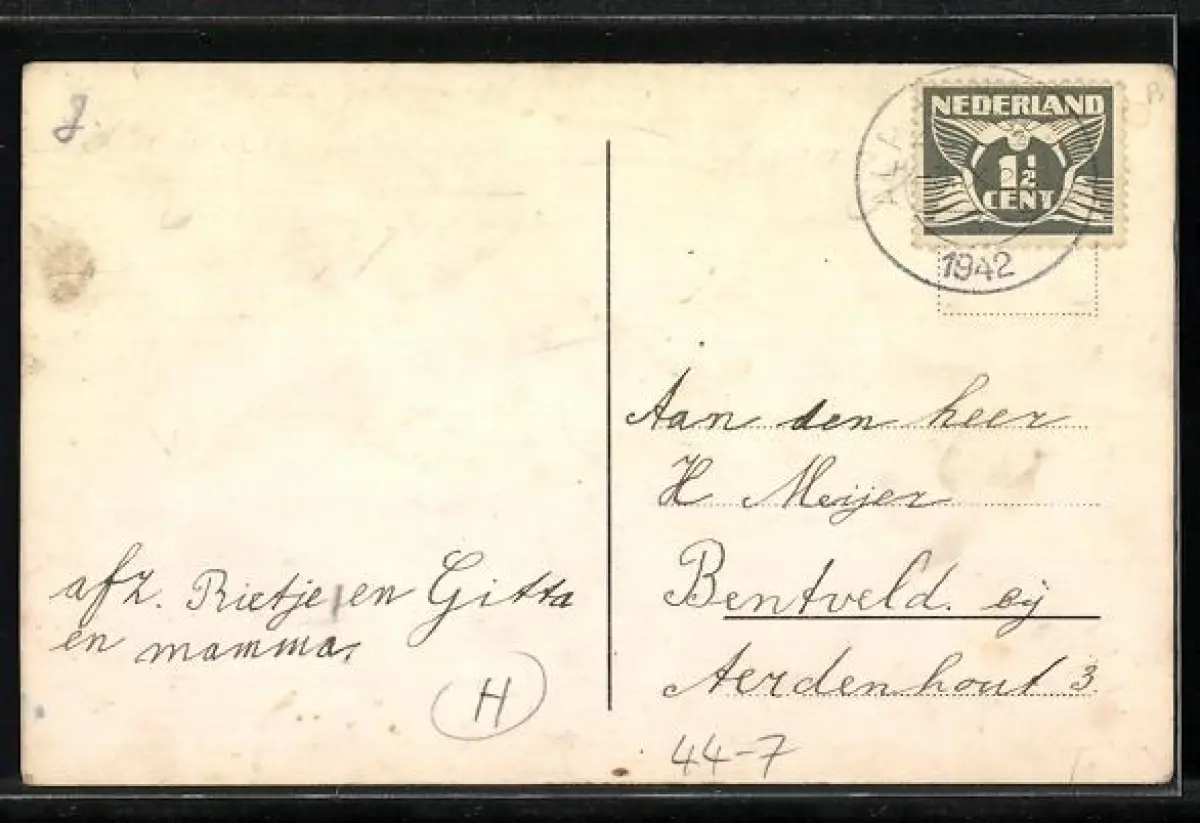 NEDERLAND
1½
CENT
1942
Aan den heer
H Meijer
Bentveld. bij
Aerdenhout 3
afz. Rietje en Gitta
en mamma.
H
44-7